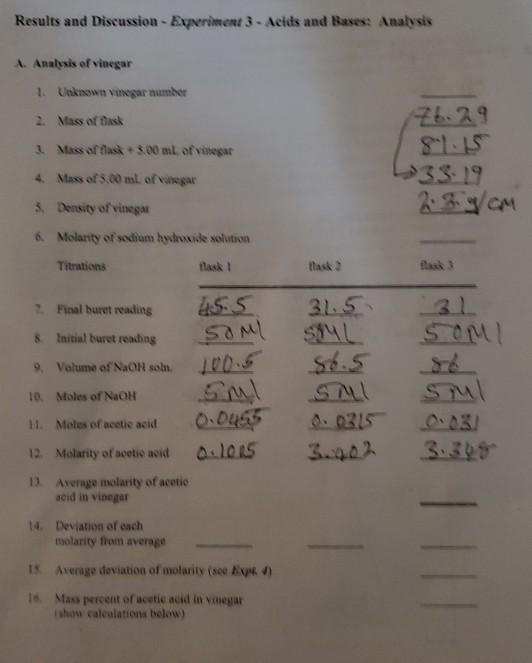 Results and Discussion - Experiment 3 - Acids and Bases: Analysis
A. Analysis of vinegar
1. Unknown vinegar number
2. Mass of flask 76.29
3. Mass of flask + 5.00 mL of vinegar 81.15
4. Mass of 5.00 mL of vinegar 33.19
5. Density of vinegar 2.3 g/cm
6. Molarity of sodium hydroxide solution
Titrations flask 1 flask 2 flask 3
7. Final buret reading 45.5 31.5 31
8. Initial buret reading 50Ml 50Ml
9. Volume of NaOH soln. 100.5 86.5 86
10. Moles of NaOH 5Ml 5Ml 5Ml
11. Moles of acetic acid 0.0455 0.0315 0.031
12. Molarity of acetic acid 0.1005 3.348
13. Average molarity of acetic
acid in vinegar
14. Deviation of each
molarity from average
15. Average deviation of molarity (see Expt. 4)
16. Mass percent of acetic acid in vinegar
(show calculations below)